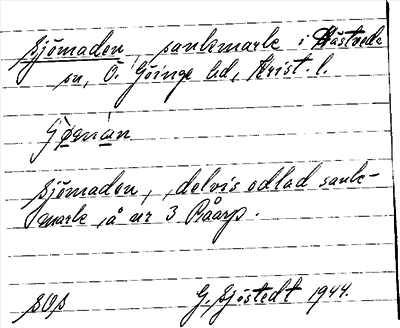 Sjömaden, sankmark i Hästveda
sn, Ö. Göinge hd, Krist. l.
Sjömaden, delvis odlad sank-
mark, å nr 3 Råarp.
G. Sjöstedt 1944.